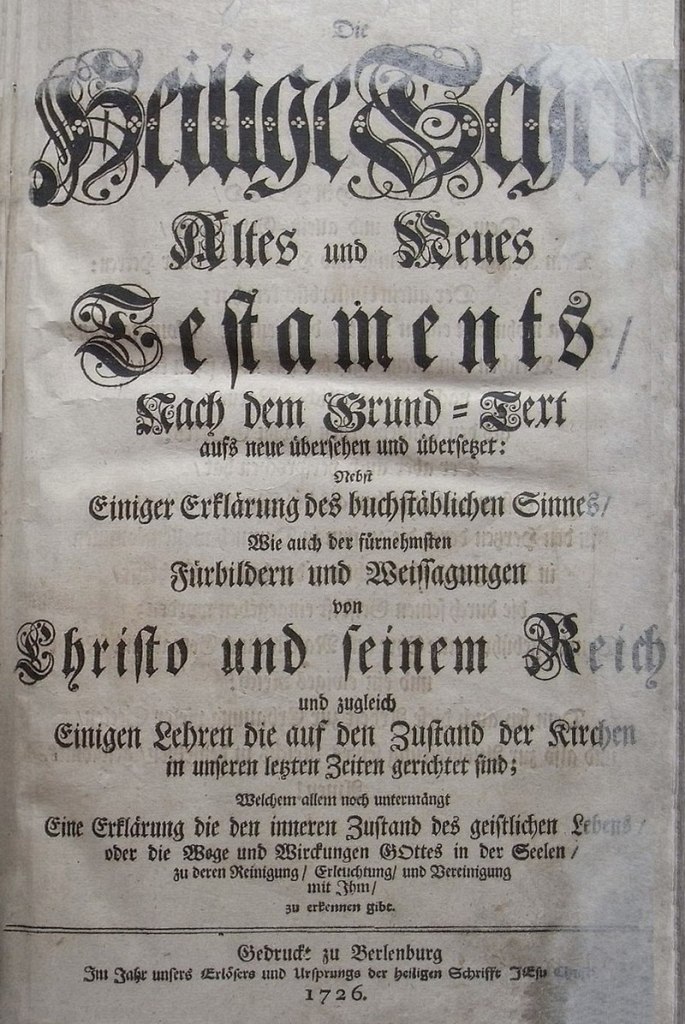 Die
Heilige Schrift
Altes und Neues
Testaments/
Nach dem Grund-Text
aufs neue übersehen und übersetzet:
Nebst
Einiger Erklärung des buchstäblichen Sinnes/
Wie auch der fürnehmsten
Fürbildern und Weissagungen
von
Christo und seinem Reich
und zugleich
Einigen Lehren die auf den Zustand der Kirchen
in unseren letzten Zeiten gerichtet sind;
Welchem allem noch untermängt
Eine Erklärung die den inneren Zustand des geistlichen Lebens/
oder die Wege und Wirckungen GOttes in der Seelen/
zu deren Reinigung/ Erleuchtung/ und Vereinigung
mit Ihm/
zu erkennen gibt.
Gedruckt zu Berlenburg
Im Jahr unsers Erlösers und Ursprungs der heiligen Schrifft JEsu Christi
1726.